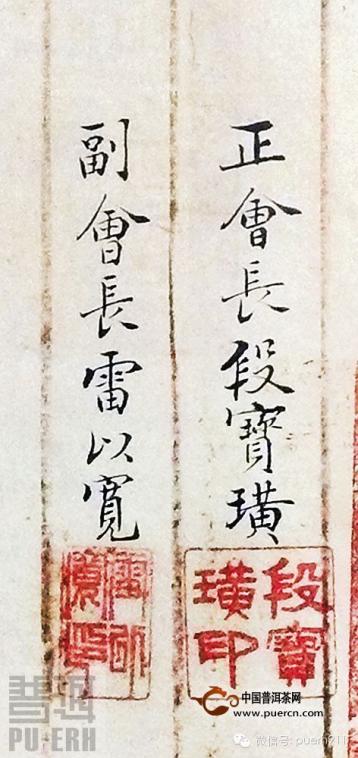 正會長段寶璜
副會長雷以寬
段寶
璜印
普洱
PU-ERH
中国普洱茶网
www.puercn.com